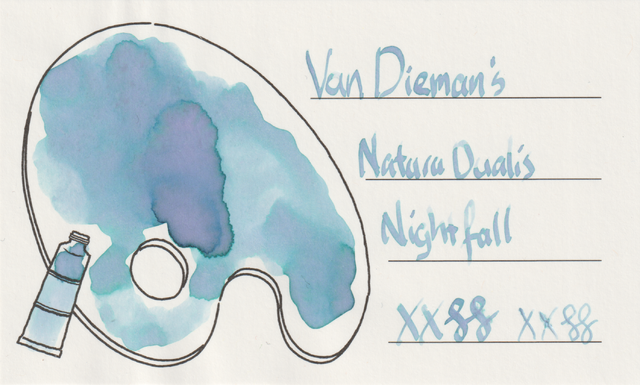 Van Dieman's
Natura Dualis
Nightfall
XX88 XX88